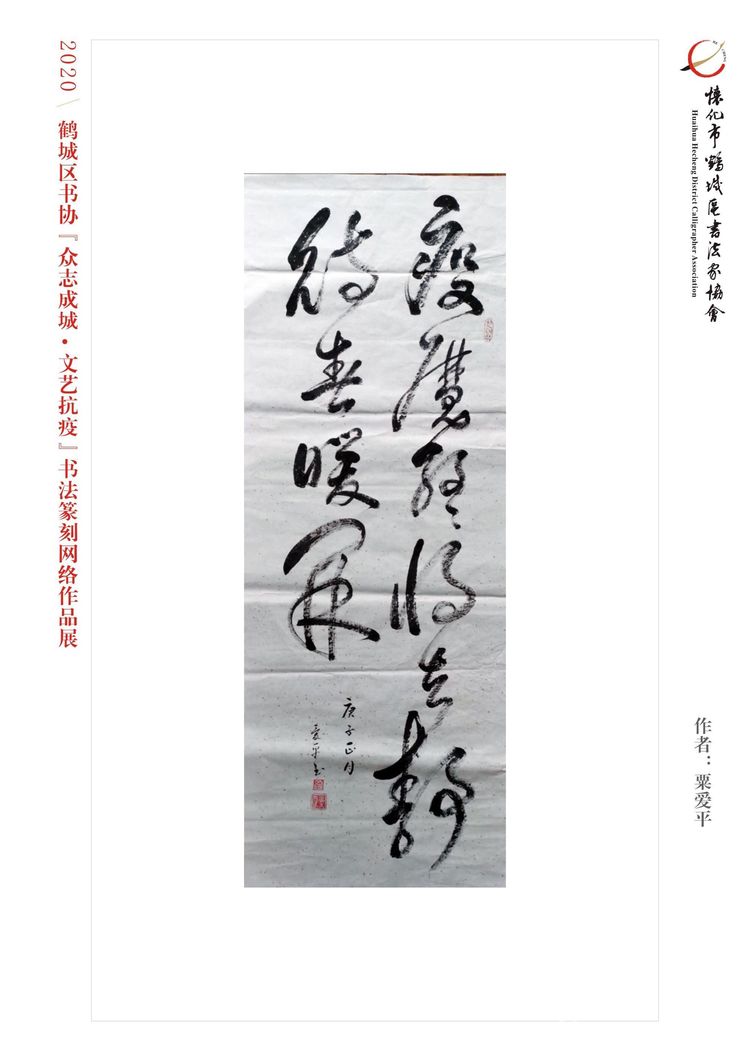 2020 鹤城区书协『众志成城·文艺抗疫』书法篆刻网络作品展
懷化市鶴城區書法家協會
Huaihua Hecheng District Calligrapher Association
疫魔終將去靜
待春暖開
庚子正月
愛平书
作者：粟爱平